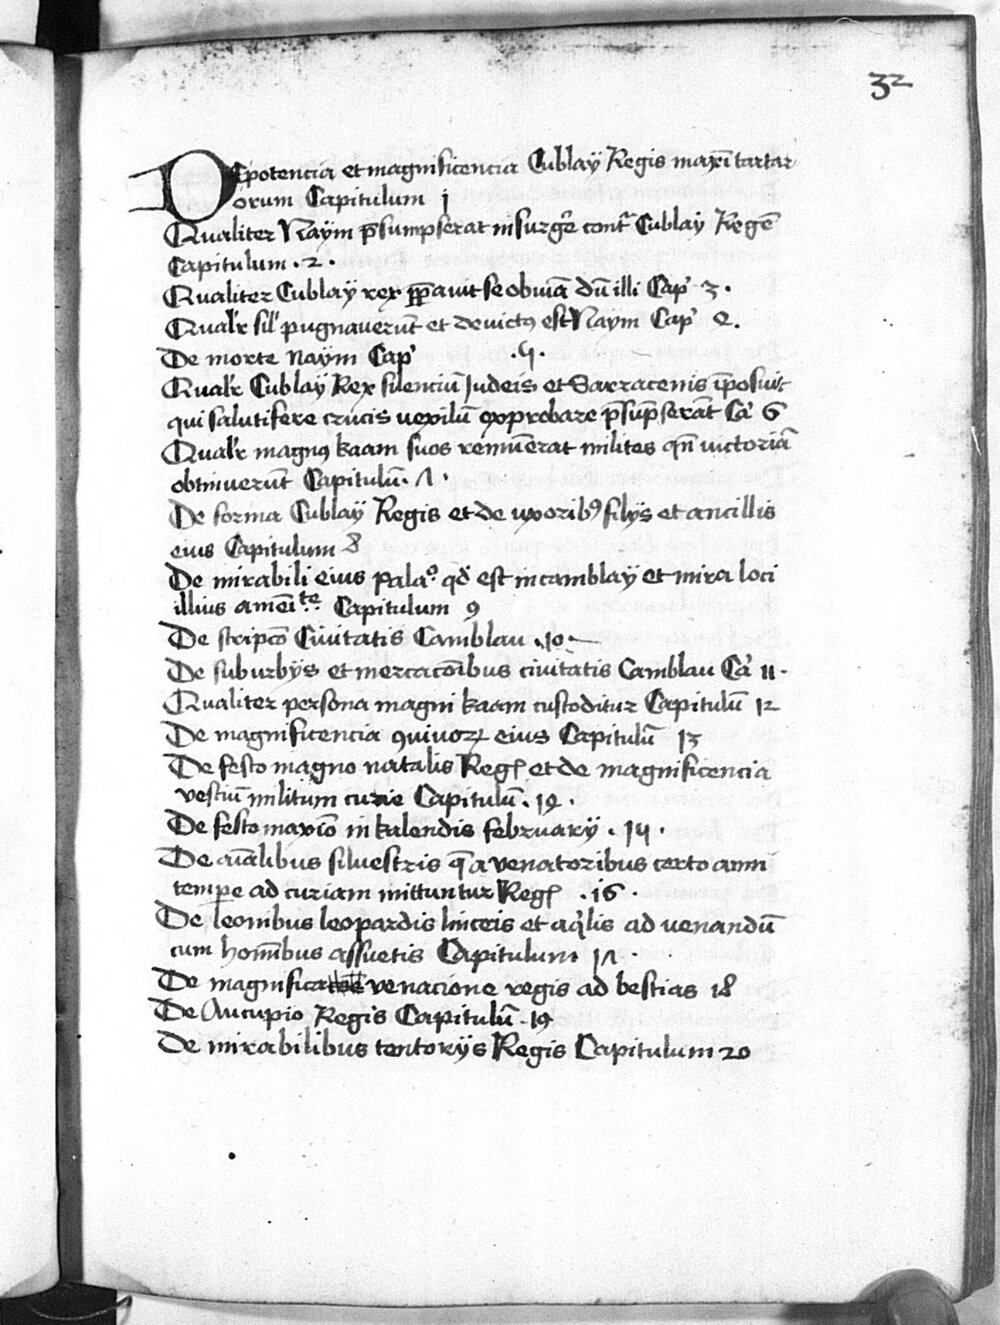 32
De potencia et magnificencia Cublaÿ Regis maxĩ tartar
orum Capitulum 1
Qualiter Naÿm p̄sumpserat insurgē cont̄ Cublaÿ Regē
Capitulum . 2 .
Qualiter Cublaÿ rex pp̄auit se obuiā dū illi Cap̄ 3 .
Qualr̄ sil' pugnauerūt et deuictꝰ est Naÿm Cap̄ 4 .
De morte naÿm Cap̄ . 5 .
Qualr̄ Cublaÿ Rex silenciū Judeis et Sarracenis īposuit
qui salutifere crucis uexilū exprobare p̄sūpserāt Ca̅ 6
Qualr̄ magnꝰ kaam suos remūerat milites qn̄ uictoriā
obtinuerūt Capitulū . 7 .
De forma Cublaÿ Regis et de uxoribꝰ filÿs et ancillis
eius Capitulum 8
De mirabili eius pala° qd̄ est in camblaÿ et mira loci
illius amēi te Capitulum 9
De descripcō Ciuitatis Camblau . 10 .
De suburbÿs et mercacōibus ciuitatis Camblau Ca̅ 11 .
Qualiter persona magni kaam custoditur Capitulū 12
De magnificencia ꝯuiuoꝝ eius Capitulū 13
De festo magno natalis Reḡ et de magnificencia
vestiū militum curie Capitulū . 14 .
De festo maxīo in kalendis februarÿ . 15 .
De aīalibus siluestris q̄ a venatoribus certo anni
tempe ad curiam mittuntur Reḡ . 16 .
De leonibus leopardis linceis et aq̇lis ad uenandū
cum homībus assuetis Capitulum 17 .
De magnifica venacione regis ad bestias 18
De Aucupio Regis Capitulū . 19
De mirabilibus tentorÿs Regis Capitulum 20